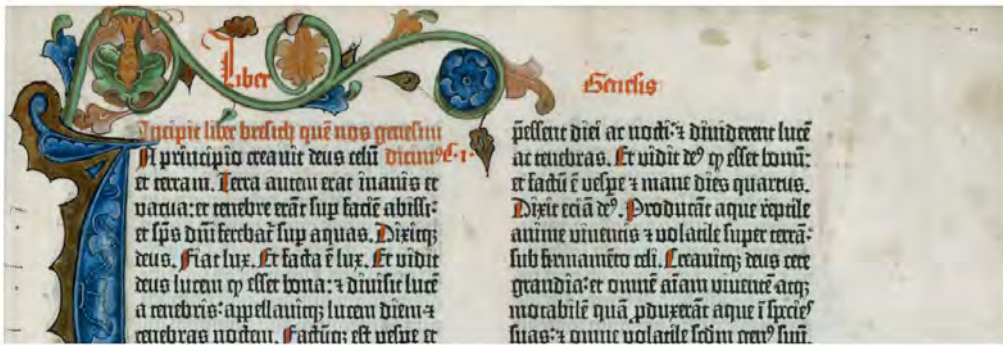 Liber
Genesis
Incipit liber bresich quē nos genesim
dicim⁹ C·1·
In principio creavit deus celū
et terram. Terra autem erat inanis et
vacua: et tenebre erāt sup faciē abissi:
et sp̄s dn̄i ferebat̄ sup aquas. Dixitqꝫ
deus. Fiat lux. Et facta ē lux. Et vidit
deus lucem ꝙ esset bona: ⁊ divisit lucē
a tenebris: appellavitqꝫ lucem diem ⁊
tenebras noctem. Factūqꝫ est vespe et
p̄essent diei ac nocti: ⁊ dividerent lucē
ac tenebras. Et vidit de⁹ ꝙ esset bonū:
et factū ē vespe ⁊ mane dies quartus.
Dixit eciā de⁹. Producāt aque reptile
anime viventis ⁊ volatile super terrā:
sub firmamēto celi. Creavitqꝫ deus cete
grandia: et omnē aīam viventē atqꝫ
motabilē quā ꝓduxerāt aque ī species
suas: ⁊ omne volatile scdm gen⁹ suū.